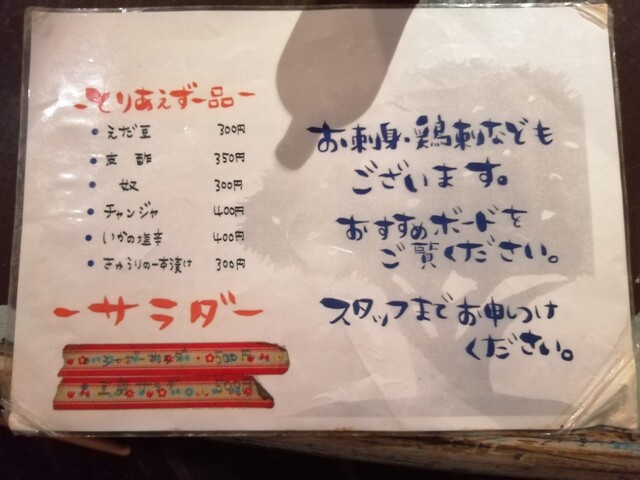 とりあえず一品
えだ豆 300円
酢 350円
奴 300円
チャンジャ 400円
いかの塩辛 400円
きゅうりの一本漬け 300円
サラダ
お刺身、鶏刺なども
ございます。
おすすめボードを
ご覧ください。
スタッフまでお申しつけ
ください。